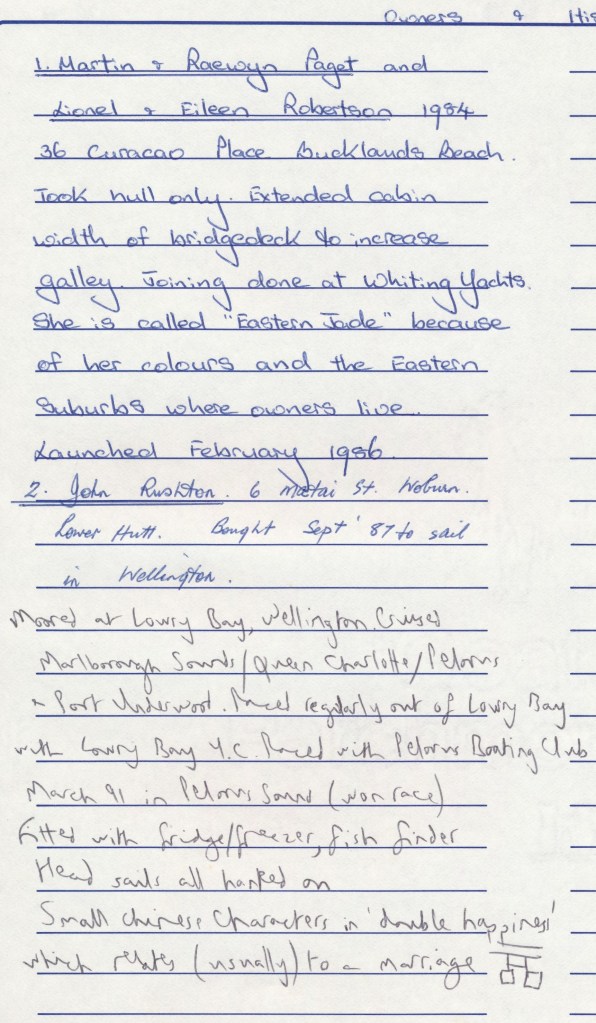 Owners & His
1. Martin & Raewyn Paget and
Lionel & Eileen Robertson 1984
36 Curacao Place Bucklands Beach.
Took hull only. Extended cabin
width of bridgedeck to increase
galley. Joining done at Whiting Yachts.
She is called "Eastern Jade" because
of her colours and the Eastern
Suburbs where owners live.
Launched February 1986.
2. John Rushton. 6 Matai St. Woburn.
Lower Hutt. Bought Sept '87 to sail
in Wellington.
Moored at Lowry Bay, Wellington. Cruised
Marlborough Sounds/Queen Charlotte/Pelorus
Port Underwood. Raced regularly out of Lowry Bay
with Lowry Bay Y.C. Raced with Pelorus Boating Club
March 91 in Pelorus Sound (won race)
Fitted with fridge/freezer, fish finder
Head sails all hanked on
Small chinese characters in 'double happiness'
which relates (usually) to a marriage